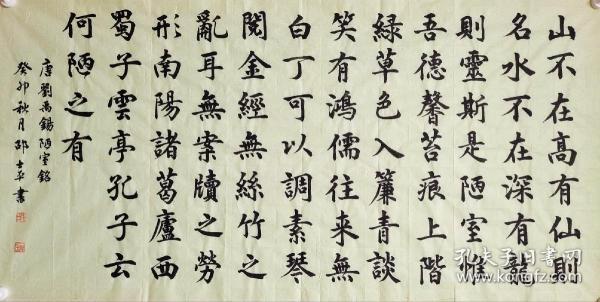 山不在高有仙則
名水不在深有龍
則靈斯是陋室惟
吾德馨苔痕上階
綠草色入簾青談
笑有鴻儒往來無
白丁可以調素琴
閱金經無絲竹之
亂耳無案牘之勞
形南陽諸葛廬西
蜀子雲亭孔子云
何陋之有
唐劉禹錫陋室銘
癸卯秋月邵士平書
孔夫子旧书网
www.kongfz.com